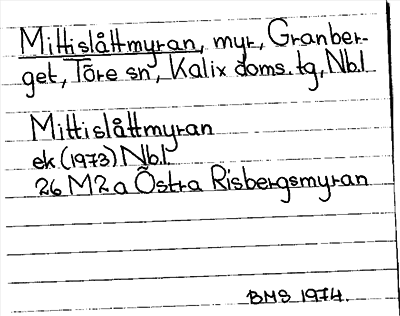 Mittislåttmyran, myr, Granber-
get, Töre sn, Kalix doms. tg, Nb.l
Mittislåttmyran
ek (1973) Nb.l.
26 M 2 a Östra Risbergsmyran
BMS 1974.